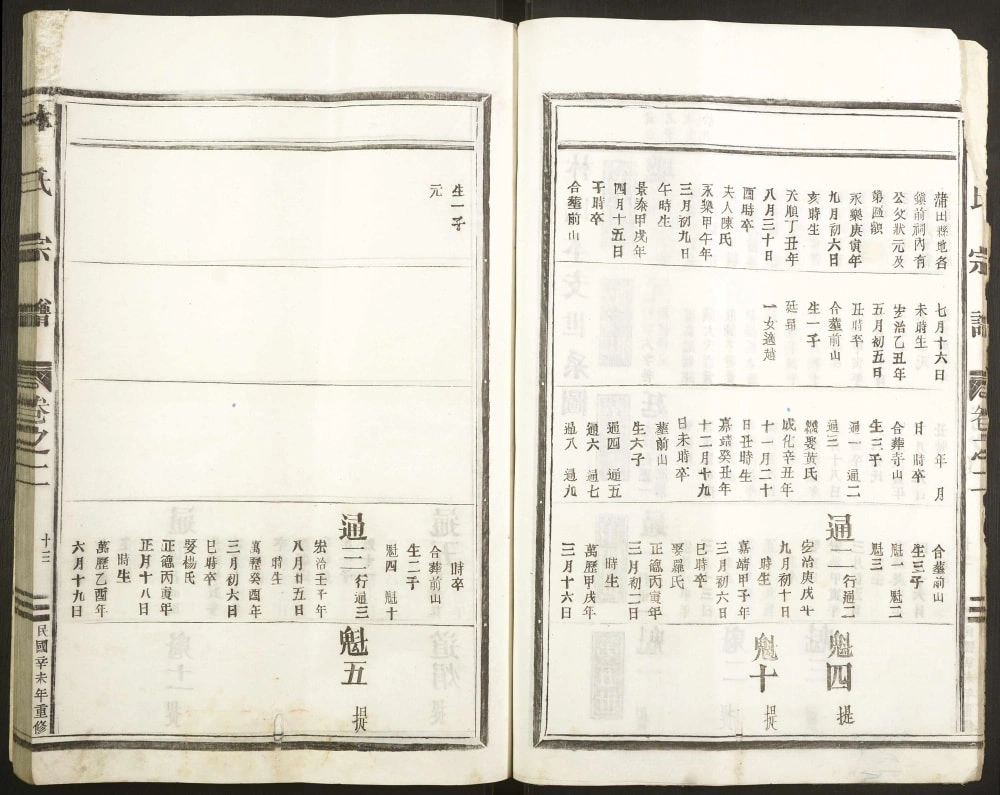 蒲田轄地各
鎮前祠內有
公父狀元及
第匾額
永樂庚寅年
九月初六日
亥時生
天順丁丑年
八月三十日
酉時卒
夫人陳氏
永樂甲午年
三月初九日
午時生
景泰甲戌年
四月十五日
午時卒
合葬前山
七月十六日
未時生
弘治乙丑年
五月初五日
丑時卒
合葬前山
生一子
廷
一女適趙
年 月
日 時卒
合葬寺山
生三子
通一 通二
通三
繼娶黃氏
成化辛丑年
十一月二十
日丑時生
嘉靖癸丑年
十二月十九
日未時卒
葬前山
生六子
通四 通五
通六 通七
通八 通九
合葬前山
生三子
魁一 魁二
魁三
通二 行通二
弘治庚戌年
九月初十日
時生
嘉靖甲子年
三月初六日
巳時卒
娶羅氏
正德丙寅年
三月初二日
時生
萬曆甲戌年
三月十六日
魁四 提
魁十 提
生一子
元
時卒
合葬前山
生二子
魁四 魁十
通三 行通三
弘治壬子年
八月廿五日
時生
萬曆癸酉年
三月初六日
巳時卒
娶楊氏
正德丙寅年
正月十八日
時生
萬曆乙酉年
六月十九日
魁五 提
林氏宗譜
卷之二
十三
民國辛未年重修